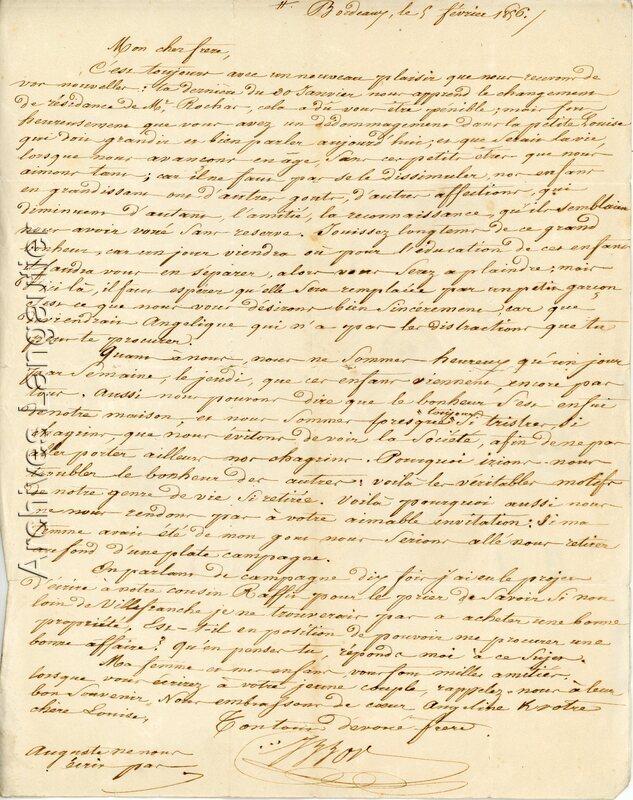 Bordeaux, le 5 février 1856.
Mon cher frere,
C'est toujours avec un nouveau plaisir que nous recevons de
vos nouvelles; la derniere du 20 Janvier nous apprend le changement
de résidence de Mr Rochas, cela a dû vous être pénible; mais fort
heureusement que vous avez un dédommagement dans la petite Louise
qui doit grandir et bien parler aujourd'hui; et que serait la vie,
lorsque nous avançons en age, sans ces petits êtres que nous
aimons tant; car il ne faut pas se le dissimuler, nos enfans
en grandissant ont d'autres gouts, d'autres affections, qui
diminuent d'autant, l'amitié, la reconnaissance, qu'ils semblaient
nous avoir voué sans reserve. Jouissez longtems de ce grand
bonheur, car un jour viendra où pour l'éducation de ces enfans
faudra vous en séparer, alors vous serez a plaindre; mais
d'ici là, il faut espérer qu'elle sera remplacée par un petit garçon
c'est ce que nous vous désirons bien sincèrement, car que
deviendrait Angelique qui n'a pas les distractions que tu
peux te procurer.
Quant à nous, nous ne sommes heureux qu'un jour
par semaine, le jeudi, que ces enfans viennent, encore pas
tous. Aussi nous pouvons dire que le bonheur s'est enfui
de notre maison, et nous sommes presque toujours si tristes, si
chagrins, que nous évitons de voir la Société, afin de ne pas
aller porter ailleurs nos chagrins. Pourquoi irions-nous
troubler le bonheur des autres; voilà les véritables motifs
de notre genre de vie si retirée. Voilà pourquoi aussi nous
ne nous rendons pas à votre aimable invitation; si ma
femme avait été de mon gout nous serions allé nous retirer
au fond d'une plate campagne.
En parlant de campagne dix fois j'ai eu le projet
d'écrire à notre cousin Raffié pour le prier de savoir si non
loin de Villefranche je ne trouverais pas a acheter une bonne
propriété; Est-il en position de pouvoir me procurer une
bonne affaire? Qu'en penses tu, réponds moi à ce sujet.
Ma femme et mes enfans vous font milles amitiés,
lorsque vous écrirez à votre jeune couple, rappelez-nous à leur
bon souvenir. Nous embrassons de cœur Angeline & votre
chère Louise.
Ton tout dévoué frere.
Auguste ne nous
écrit pas
Archives Haugautié